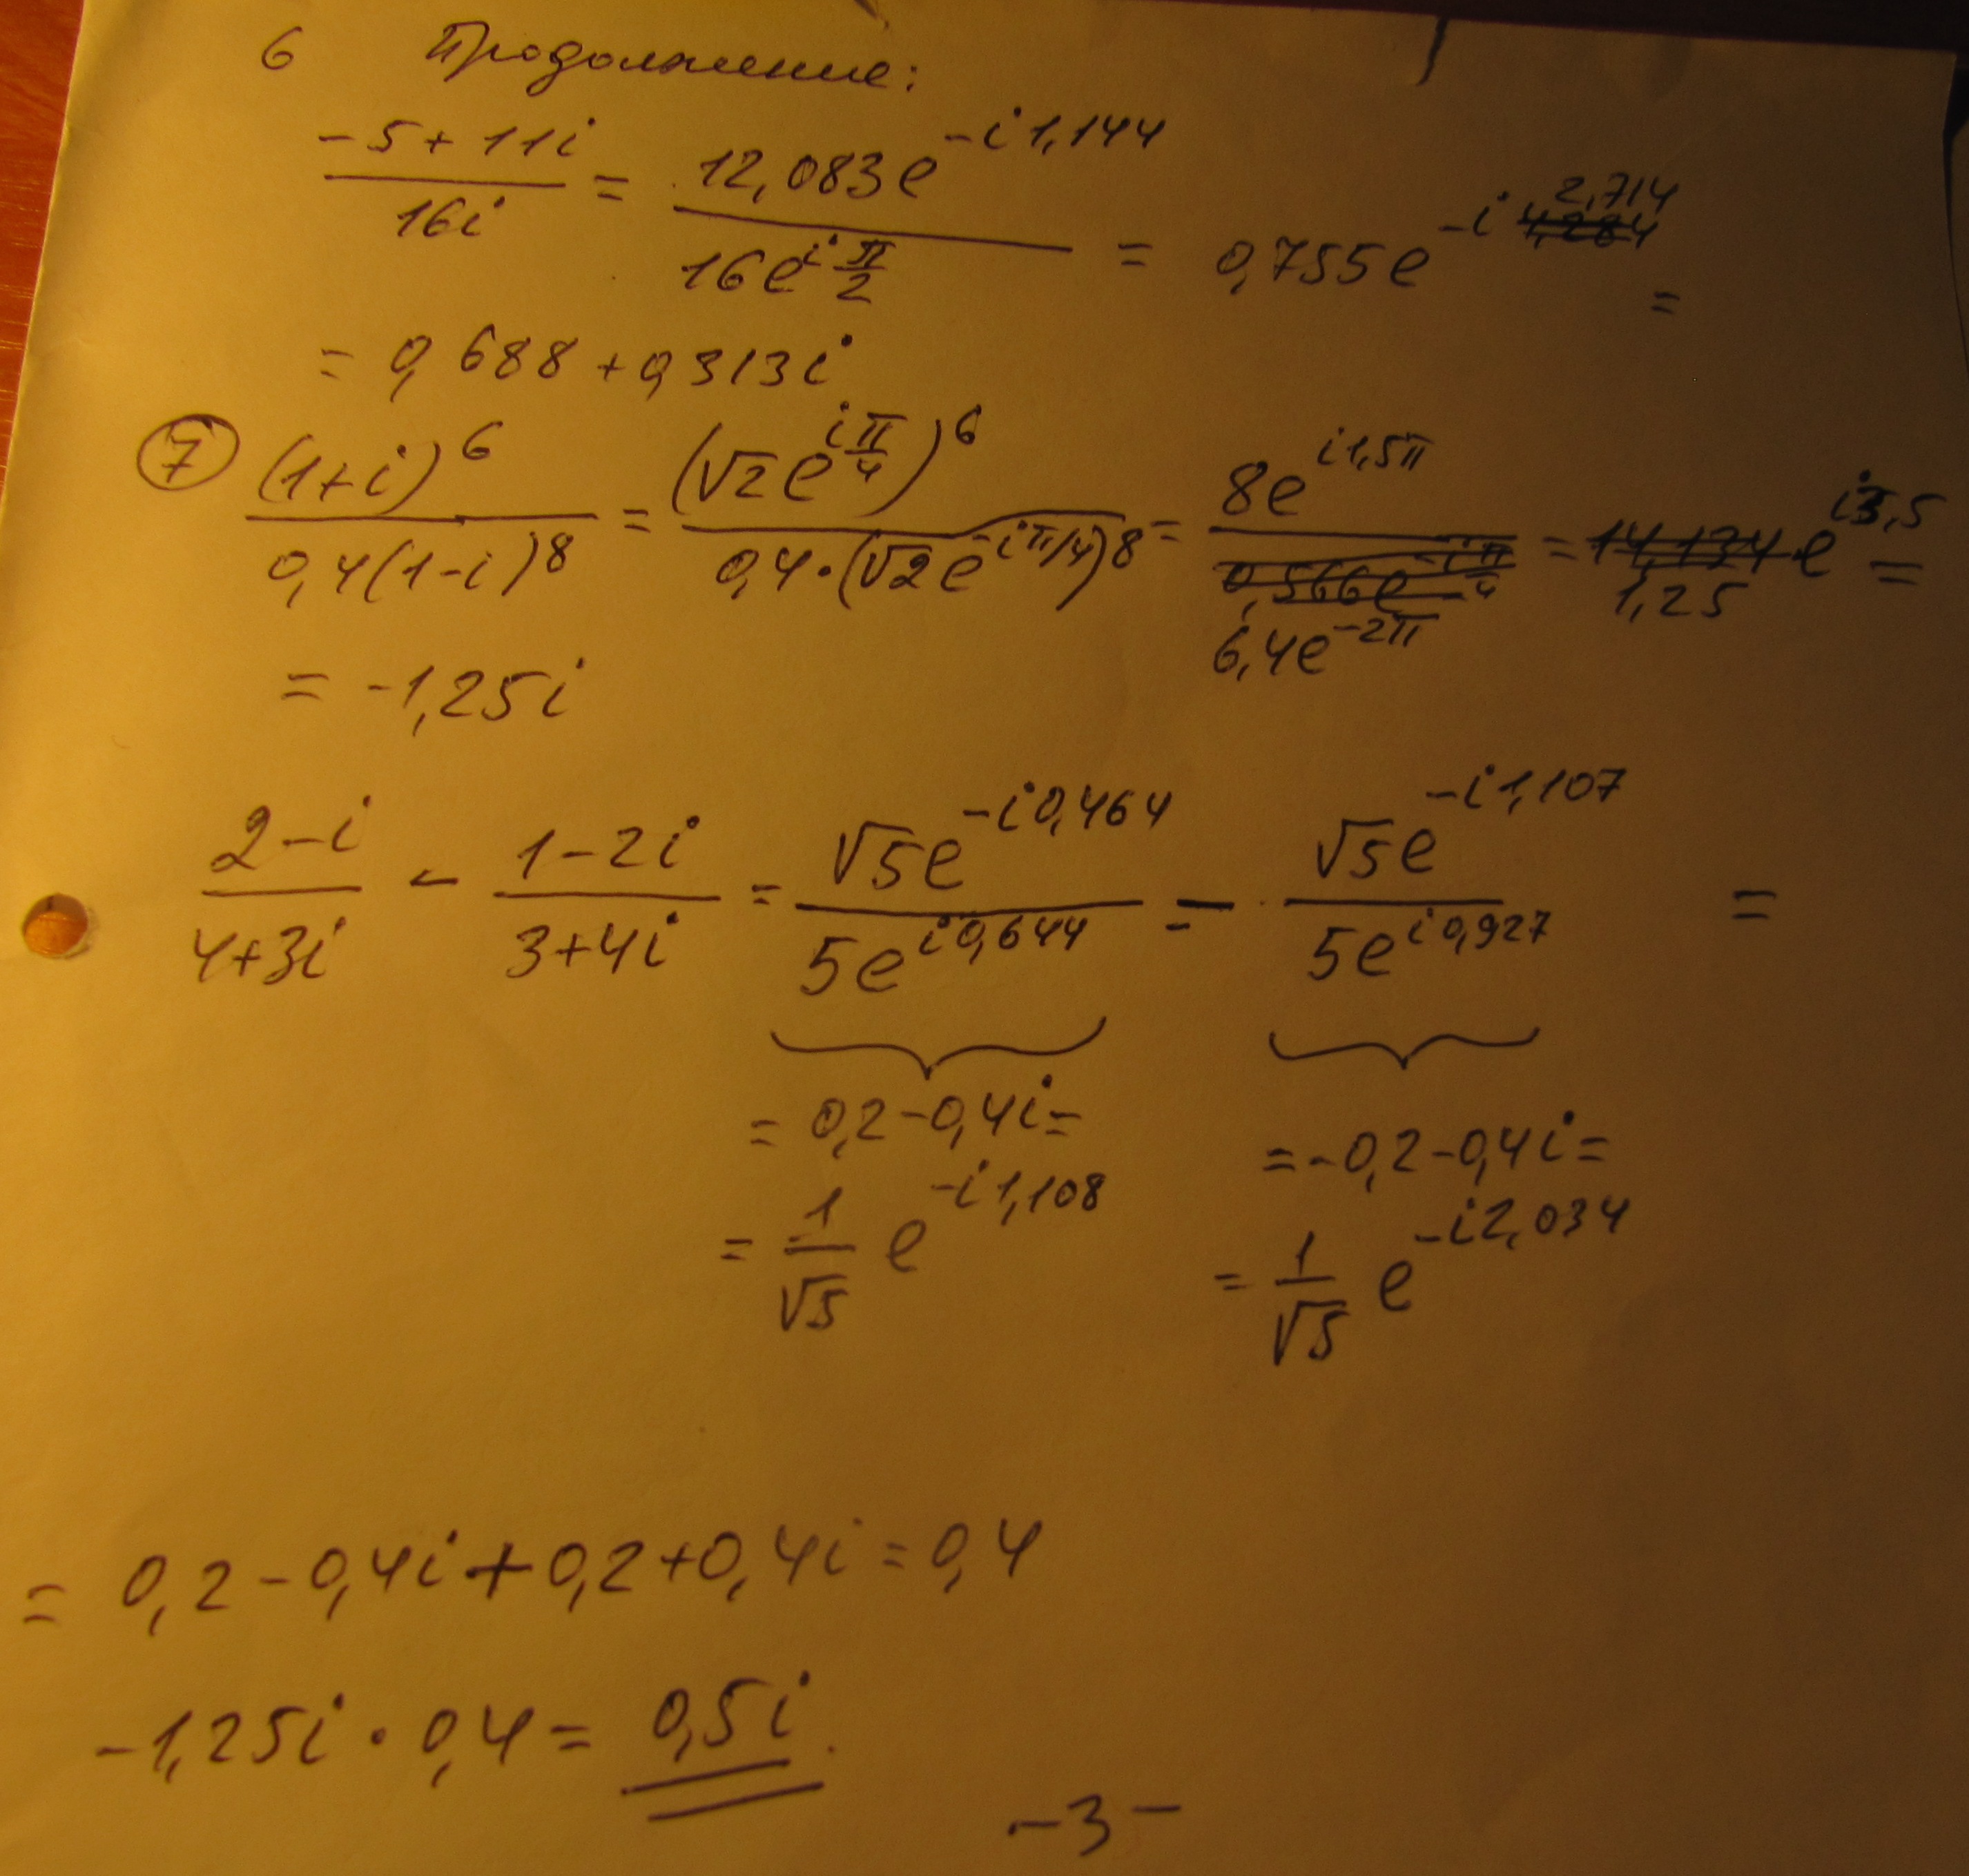 6 Продолжение:
(-5+11i)/(16i) = (12,083e^(-i1,144))/(16e^(i π/2)) = 0,755e^(-i 2,714) =
= 0,688+0,313i
⑦ (1+i)^6/(0,4(1-i)^8) = (√2e^(i π/4))^6/(0,4·(√2e^(-iπ/4))^8) = 8e^(i1,5π)/(6,4e^(-2π)) = 1,25 e^(i3,5) =
= -1,25i
(2-i)/(4+3i) - (1-2i)/(3+4i) = (√5e^(-i0,464))/(5e^(i0,644)) - (√5e^(-i1,107))/(5e^(i0,927)) =
= 0,2-0,4i= = -0,2-0,4i=
= 1/√5 e^(-i1,108) = 1/√5 e^(-i2,034)
= 0,2-0,4i+0,2+0,4i=0,4
-1,25i·0,4= 0,5i.
-3-